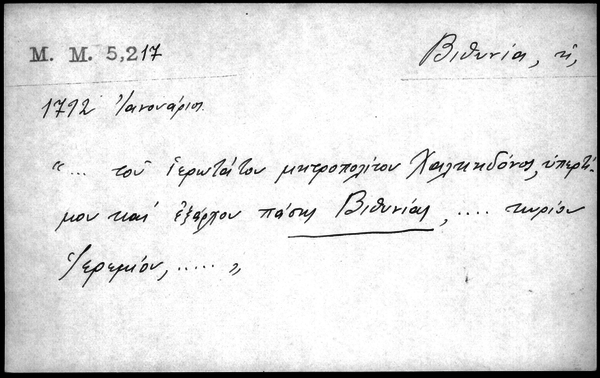 Μ. Μ. 5,217
Βιθυνία, ἡ,
1792 Ἰανουάριος
“... τοῦ ἱερωτάτου μητροπολίτου Χαλκηδόνος, ὑπερτί-
μου καὶ ἐξάρχου πάσης Βιθυνίας, .... κυρίου
Ἱερεμίου, ..... „